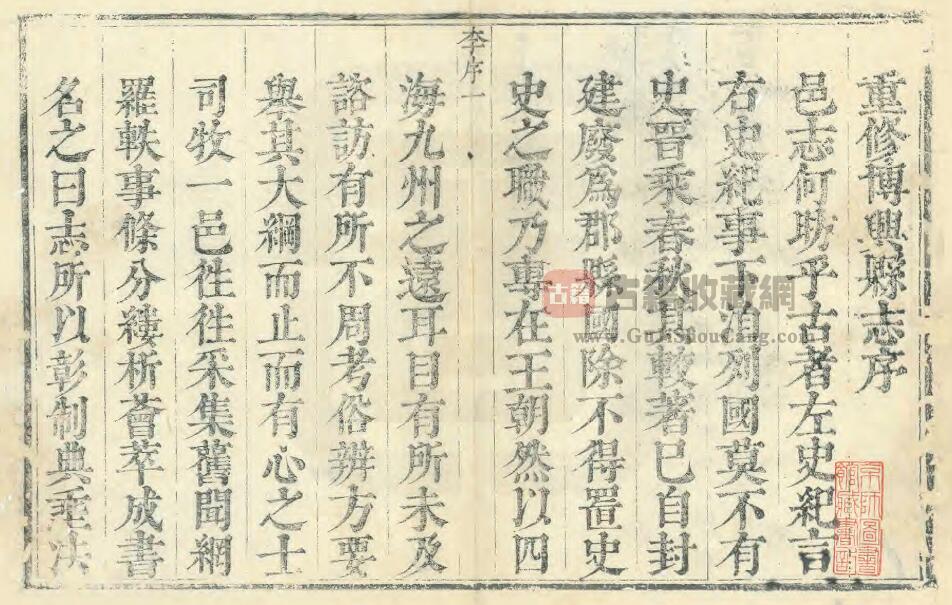 重修博興縣志序
邑志何昉乎古者左史紀言
右史紀事下洎列國莫不有
史晉乘春秋其較著已自封
建廢爲郡縣國除不得置史
史之職乃專在王朝然以四
李序一
海九州之遠耳目有所未及
諮訪有所不周考俗辨方要
舉其大綱而止而有心之士
司牧一邑徃徃采集舊聞網
羅軼事條分縷析薈萃成書
名之曰志所以彰制典垂决
古籍
古籍收藏網
www.GuJiShouCang.com
圖書
館藏書